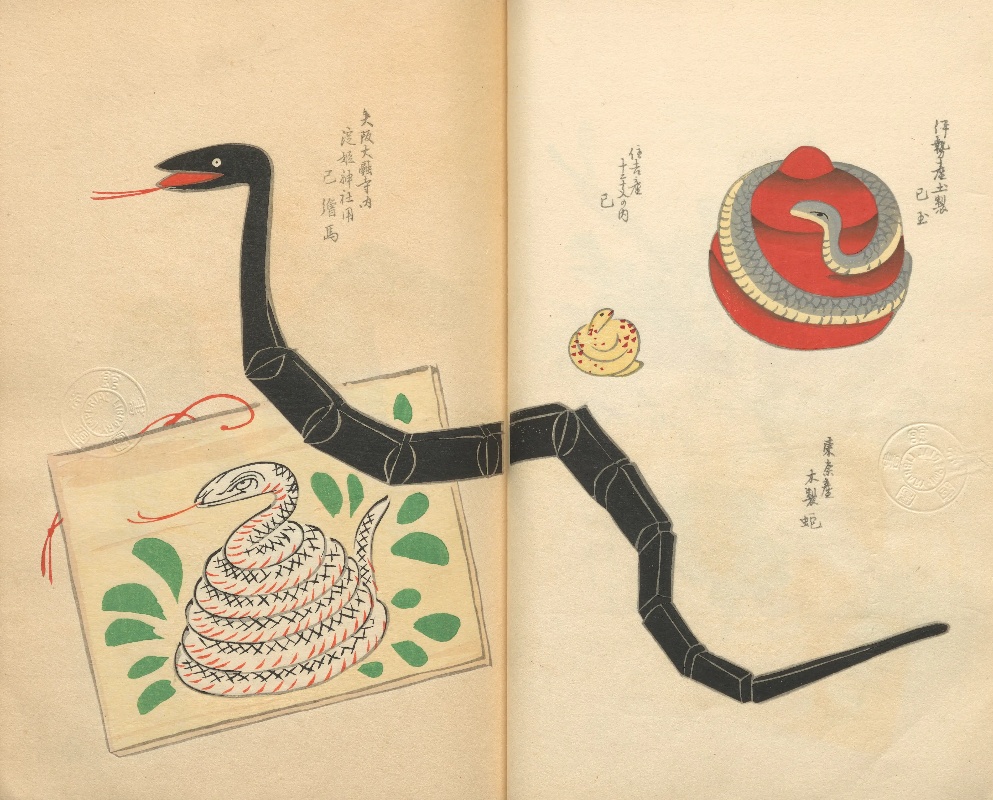 伊勢産土製
巳玉
住吉産
十二支の内
巳
東京産
木製蛇
大阪大融寺内
淀姫神社用
巳繪馬